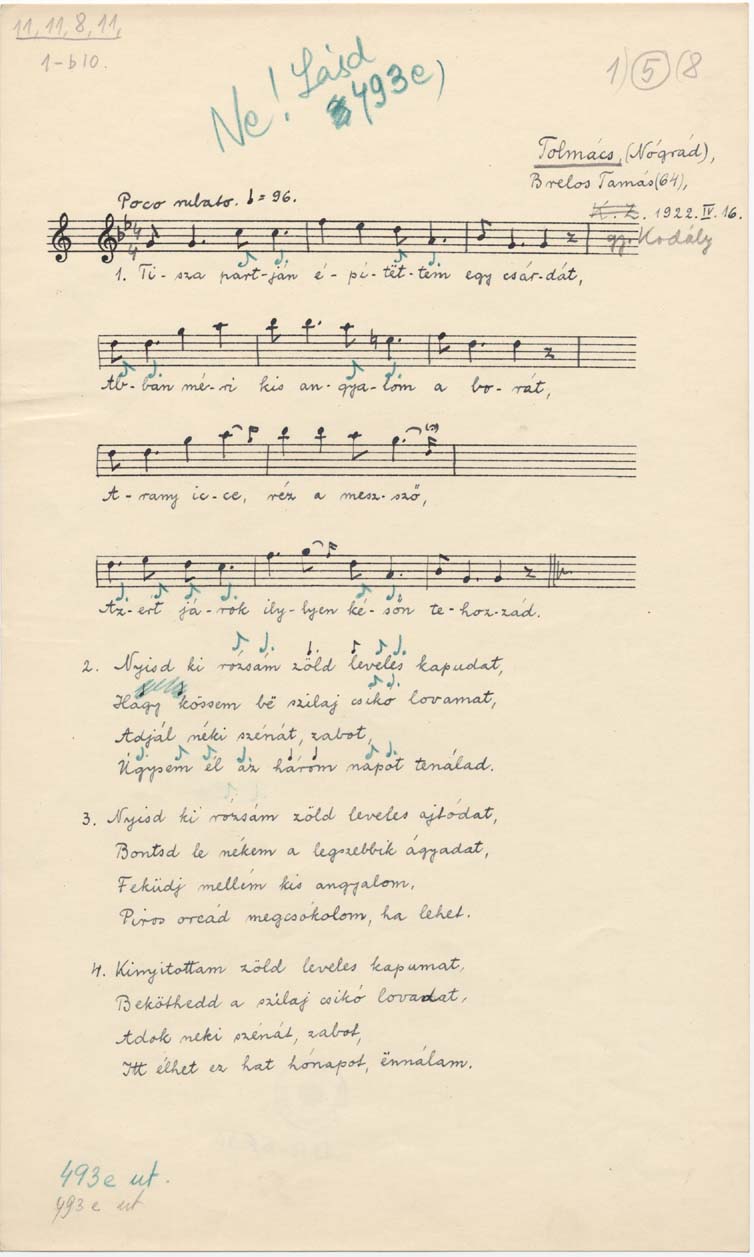 11, 11, 8, 11,
1-b10.
Ne! Lásd
493e)
1) 5 (8
Tolmács, (Nógrád),
Brelos Tamás (64),
K. Z. 1922. IV. 16.
gy. Kodály
Poco rubato. ♩ = 96.
1. Ti - sza part-ján é - pi - tët-tem egy csár-dát,
Ab-ban mé-ri kis an-gya-lom a bo-rát,
A-rany ic-ce, réz a mesz-sző,
Az-ért já-rok ily-lyen ké-sőn te-hoz-zád.
2. Nyisd ki rózsám zöld leveles kapudat,
Hagy kössem bë szilaj csikó lovamat,
Adjál néki szénát, zabot,
Úgysem él az három napot tenálad.
3. Nyisd ki rózsám zöld leveles ajtódat,
Bontsd le nékem a legszebbik ágyadat,
Feküdj mellém kis angyalom,
Piros orcád megcsókolom, ha lehet.
4. Kinyitottam zöld leveles kapumat,
Beköthedd a szilaj csikó lovadat,
Adok neki szénát, zabot,
Itt élhet ez hat hónapot, ënnálam.
493e ut.
493 e ut